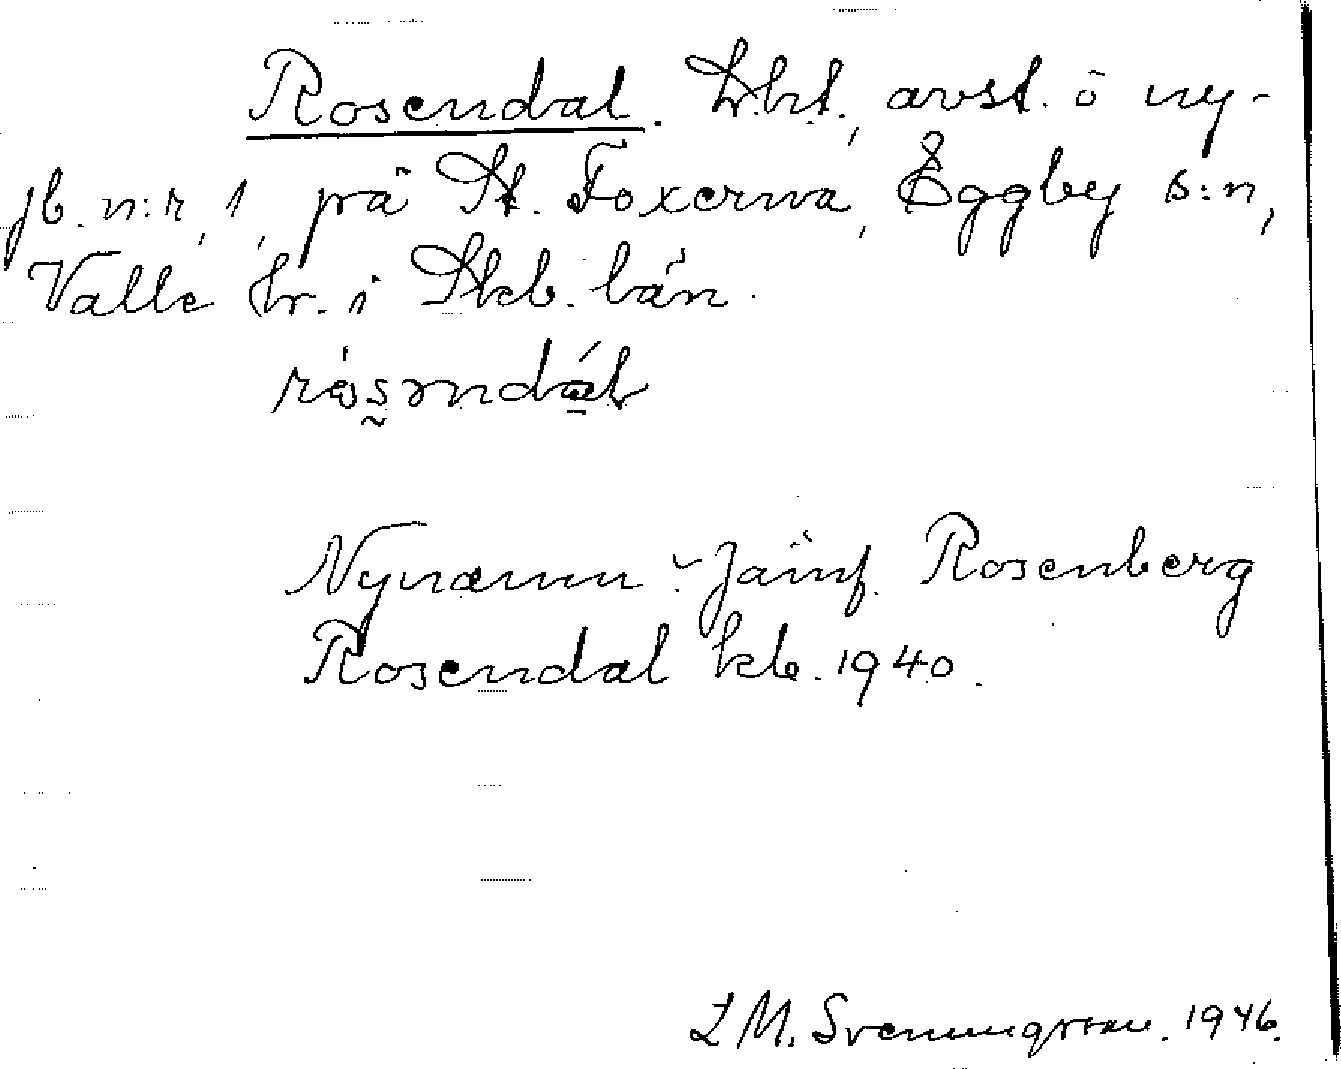 Rosendal. Lht., avst. ö ny-
jb. n:r, 1, på St. Foxerna, Eggby s:n,
Valle hr. i Skb. län.
rósəndál
Nynamn. Jämf. Rosenberg
Rosendal kb. 1940.
L M. Svenungsson. 1946.